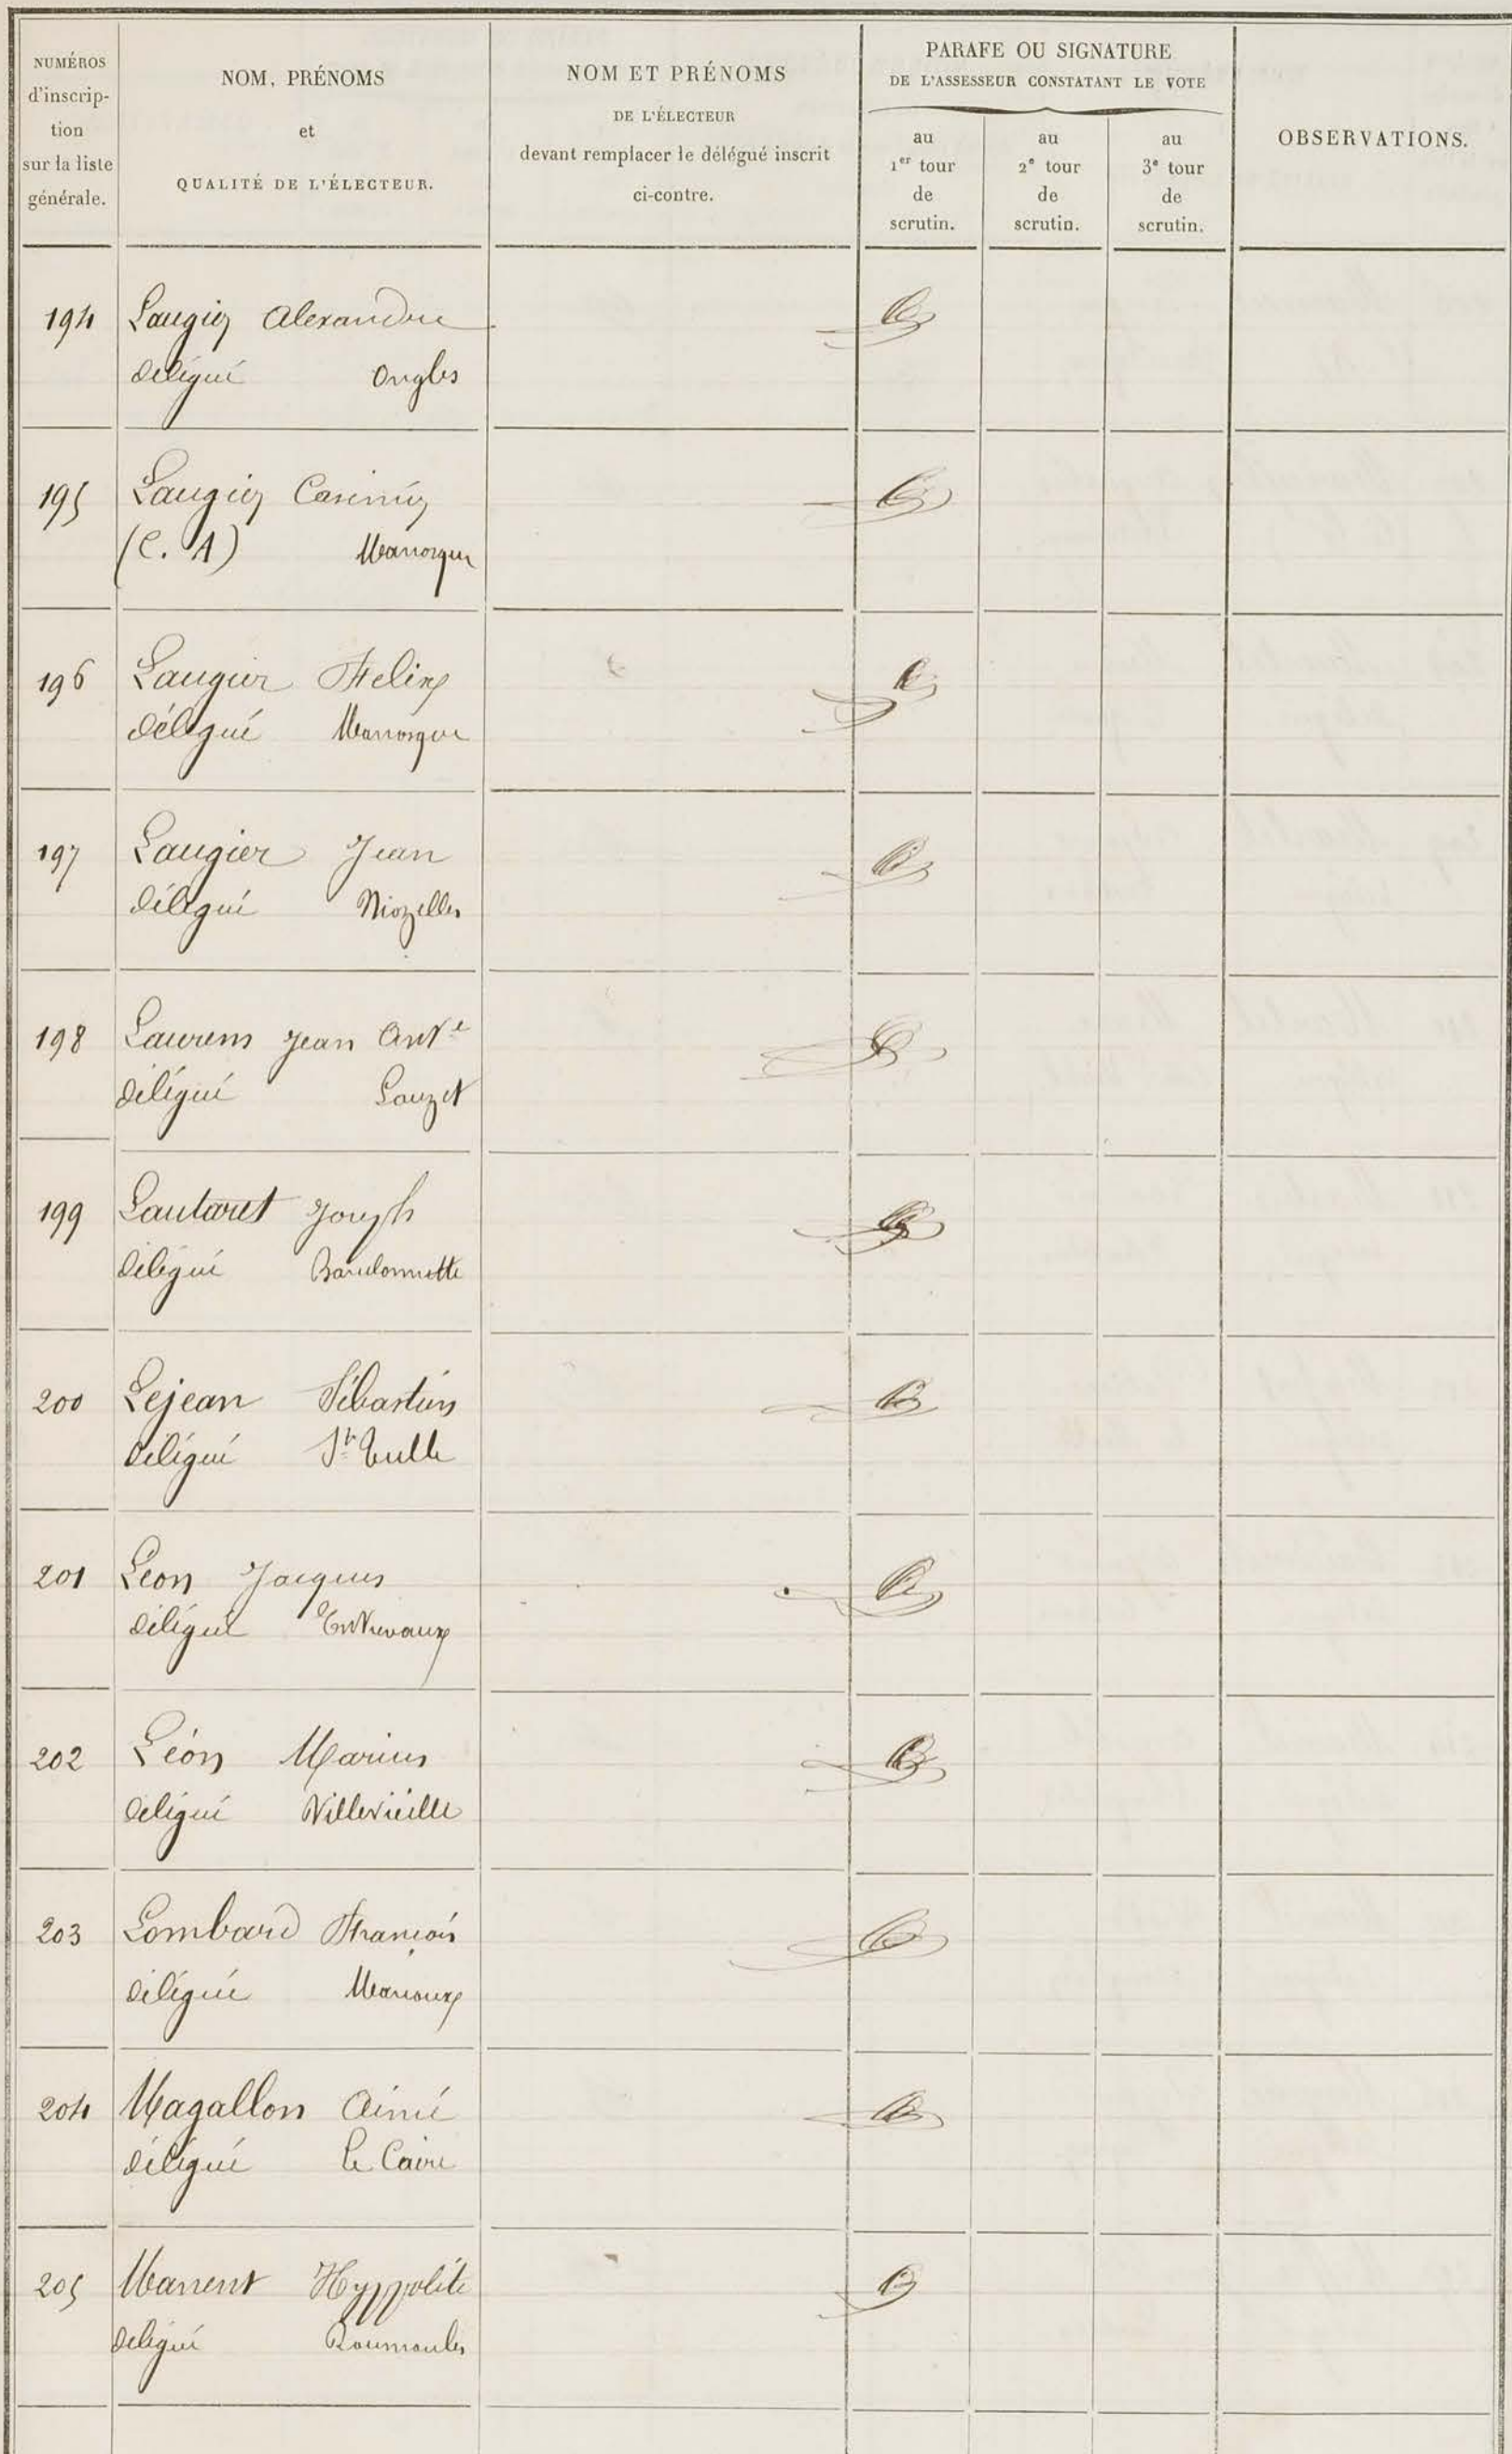 NUMÉROS
d'inscrip-
tion
sur la liste
générale.
NOM, PRÉNOMS
et
QUALITÉ DE L'ÉLECTEUR.
NOM ET PRÉNOMS
DE L'ÉLECTEUR
devant remplacer le délégué inscrit
ci-contre.
PARAFE OU SIGNATURE
DE L'ASSESSEUR CONSTATANT LE VOTE
au
1er tour
de
scrutin.
au
2e tour
de
scrutin.
au
3e tour
de
scrutin.
OBSERVATIONS.
194 Laugier Alexandre
délégué Ongles
195 Laugier Casimir
(C. A) Manosque
196 Laugier Felix
délégué Manosque
197 Laugier Jean
délégué Niozelles
198 Laurens Jean Ant.e
délégué Lauzet
199 Lautaret Joseph
délégué Baudonnette
200 Lejean Sébastien
délégué Ste Tulle
201 Leon Jacques
délégué Entrevaux
202 Léon Marius
délégué Villevieille
203 Lombard François
délégué Mariaux
204 Magallon Aimé
délégué Le Caire
205 Manent Hyppolite
délégué Roumoules